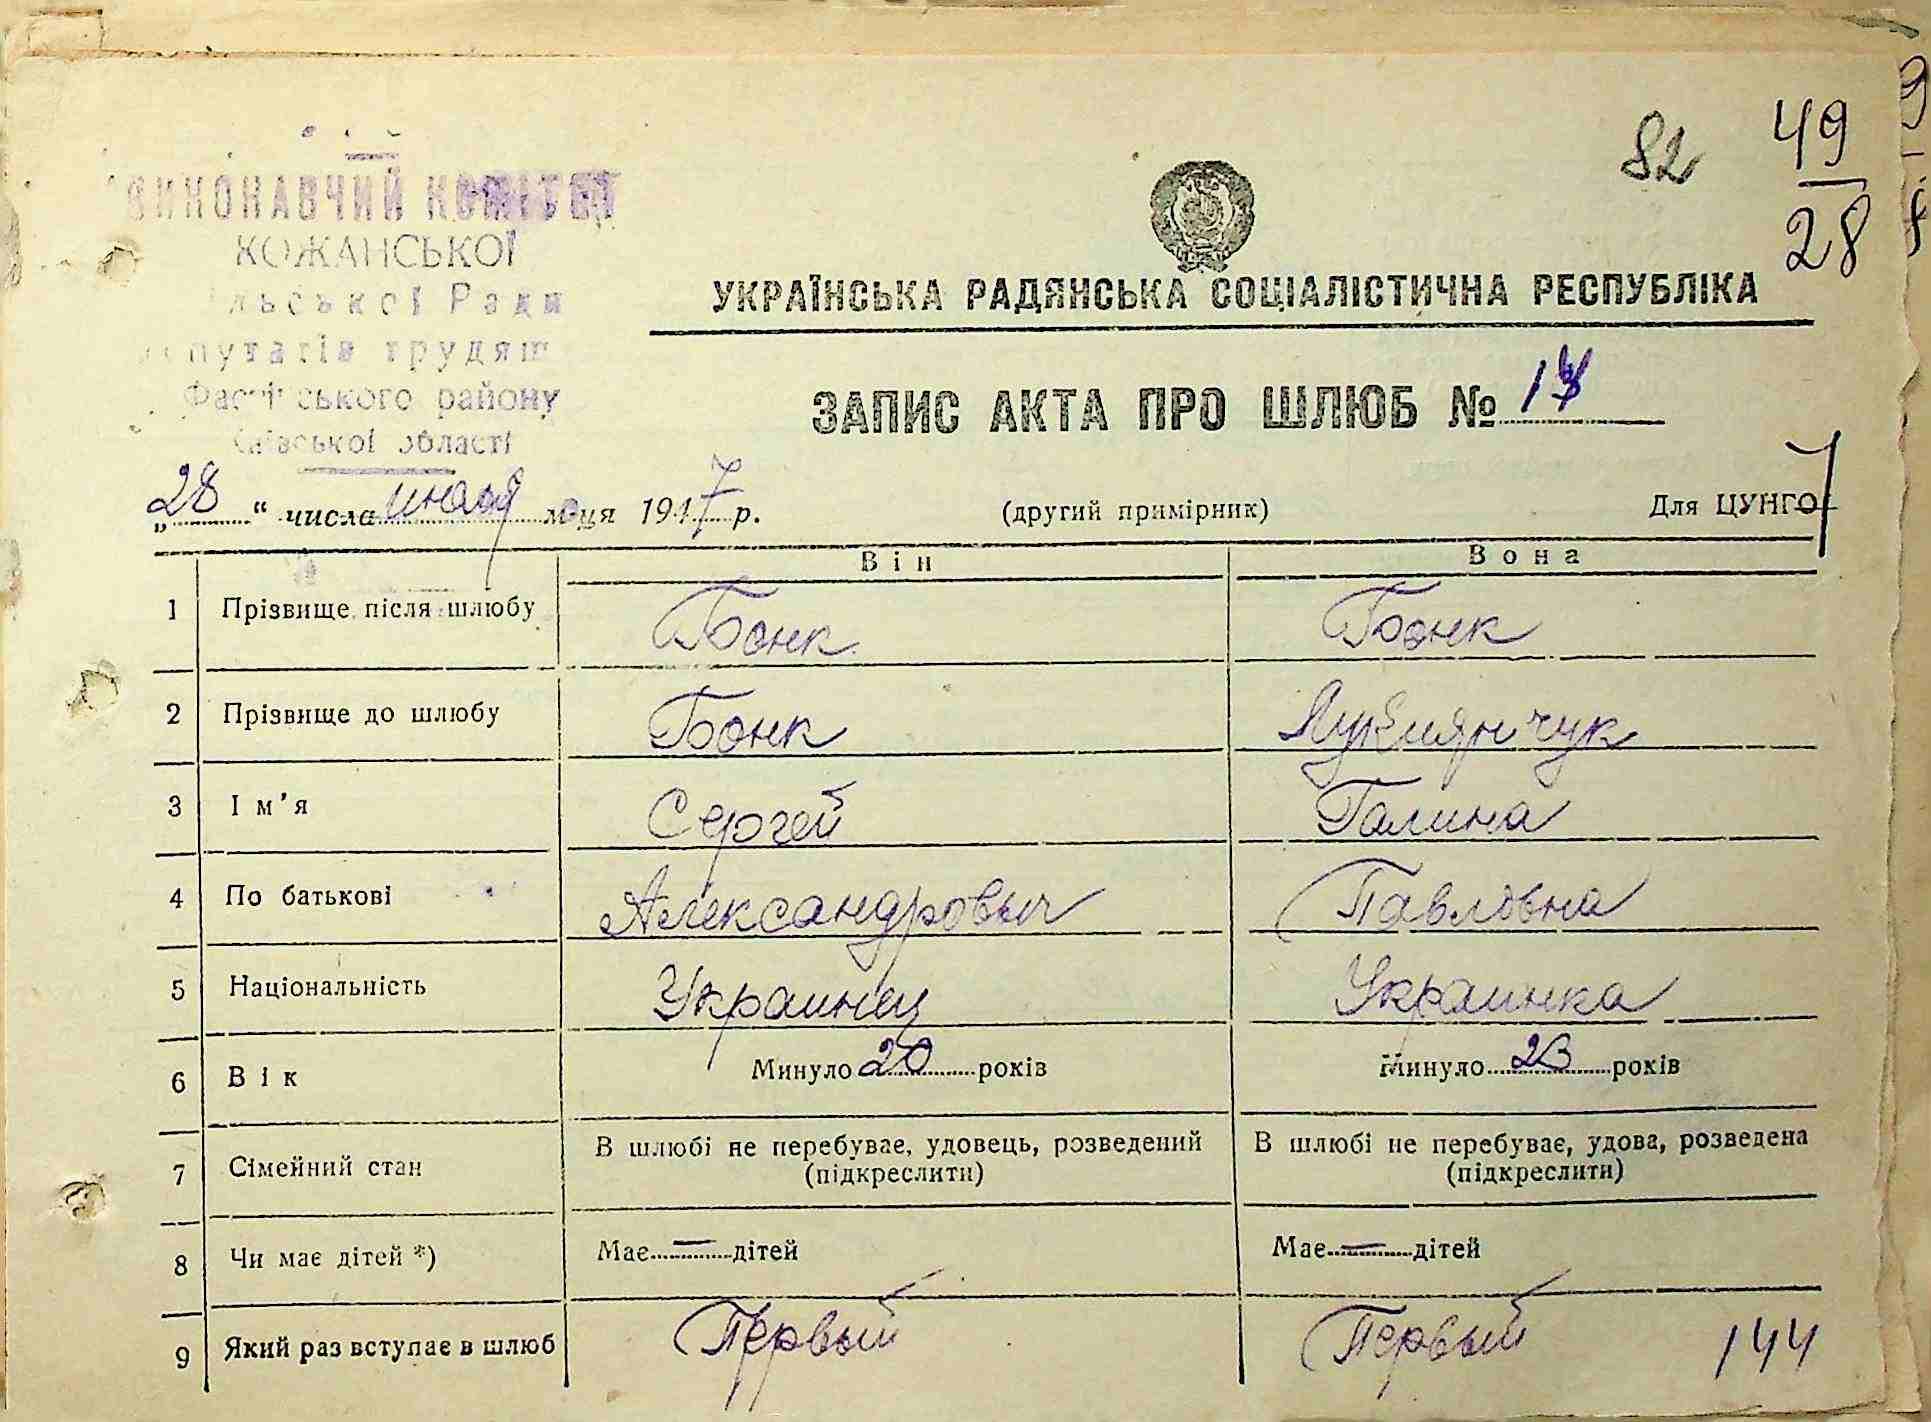 82
49
28
ВИКОНАВЧИЙ КОМІТЕТ
КОЖАНСЬКОЇ
льської Ради
путатів трудящ
Фастівського району
Київської області
УКРАЇНСЬКА РАДЯНСЬКА СОЦІАЛІСТИЧНА РЕСПУБЛІКА
ЗАПИС АКТА ПРО ШЛЮБ №
„28“ числа м-ця 1947 р. (другий примірник) Для ЦУНГО
Він Вона
1 Прізвище після шлюбу Бонк Бонк
2 Прізвище до шлюбу Бонк Лукиянчук
3 Ім'я Сергей Галина
4 По батькові Александровыч Павловна
5 Національність Украинец Украинка
6 Вік Минуло 20 років Минуло 23 років
7 Сімейний стан В шлюбі не перебуває, удовець, розведений (підкреслити) В шлюбі не перебуває, удова, розведена (підкреслити)
8 Чи має дітей *) Має — дітей Має — дітей
9 Який раз вступає в шлюб Первый Первый
144